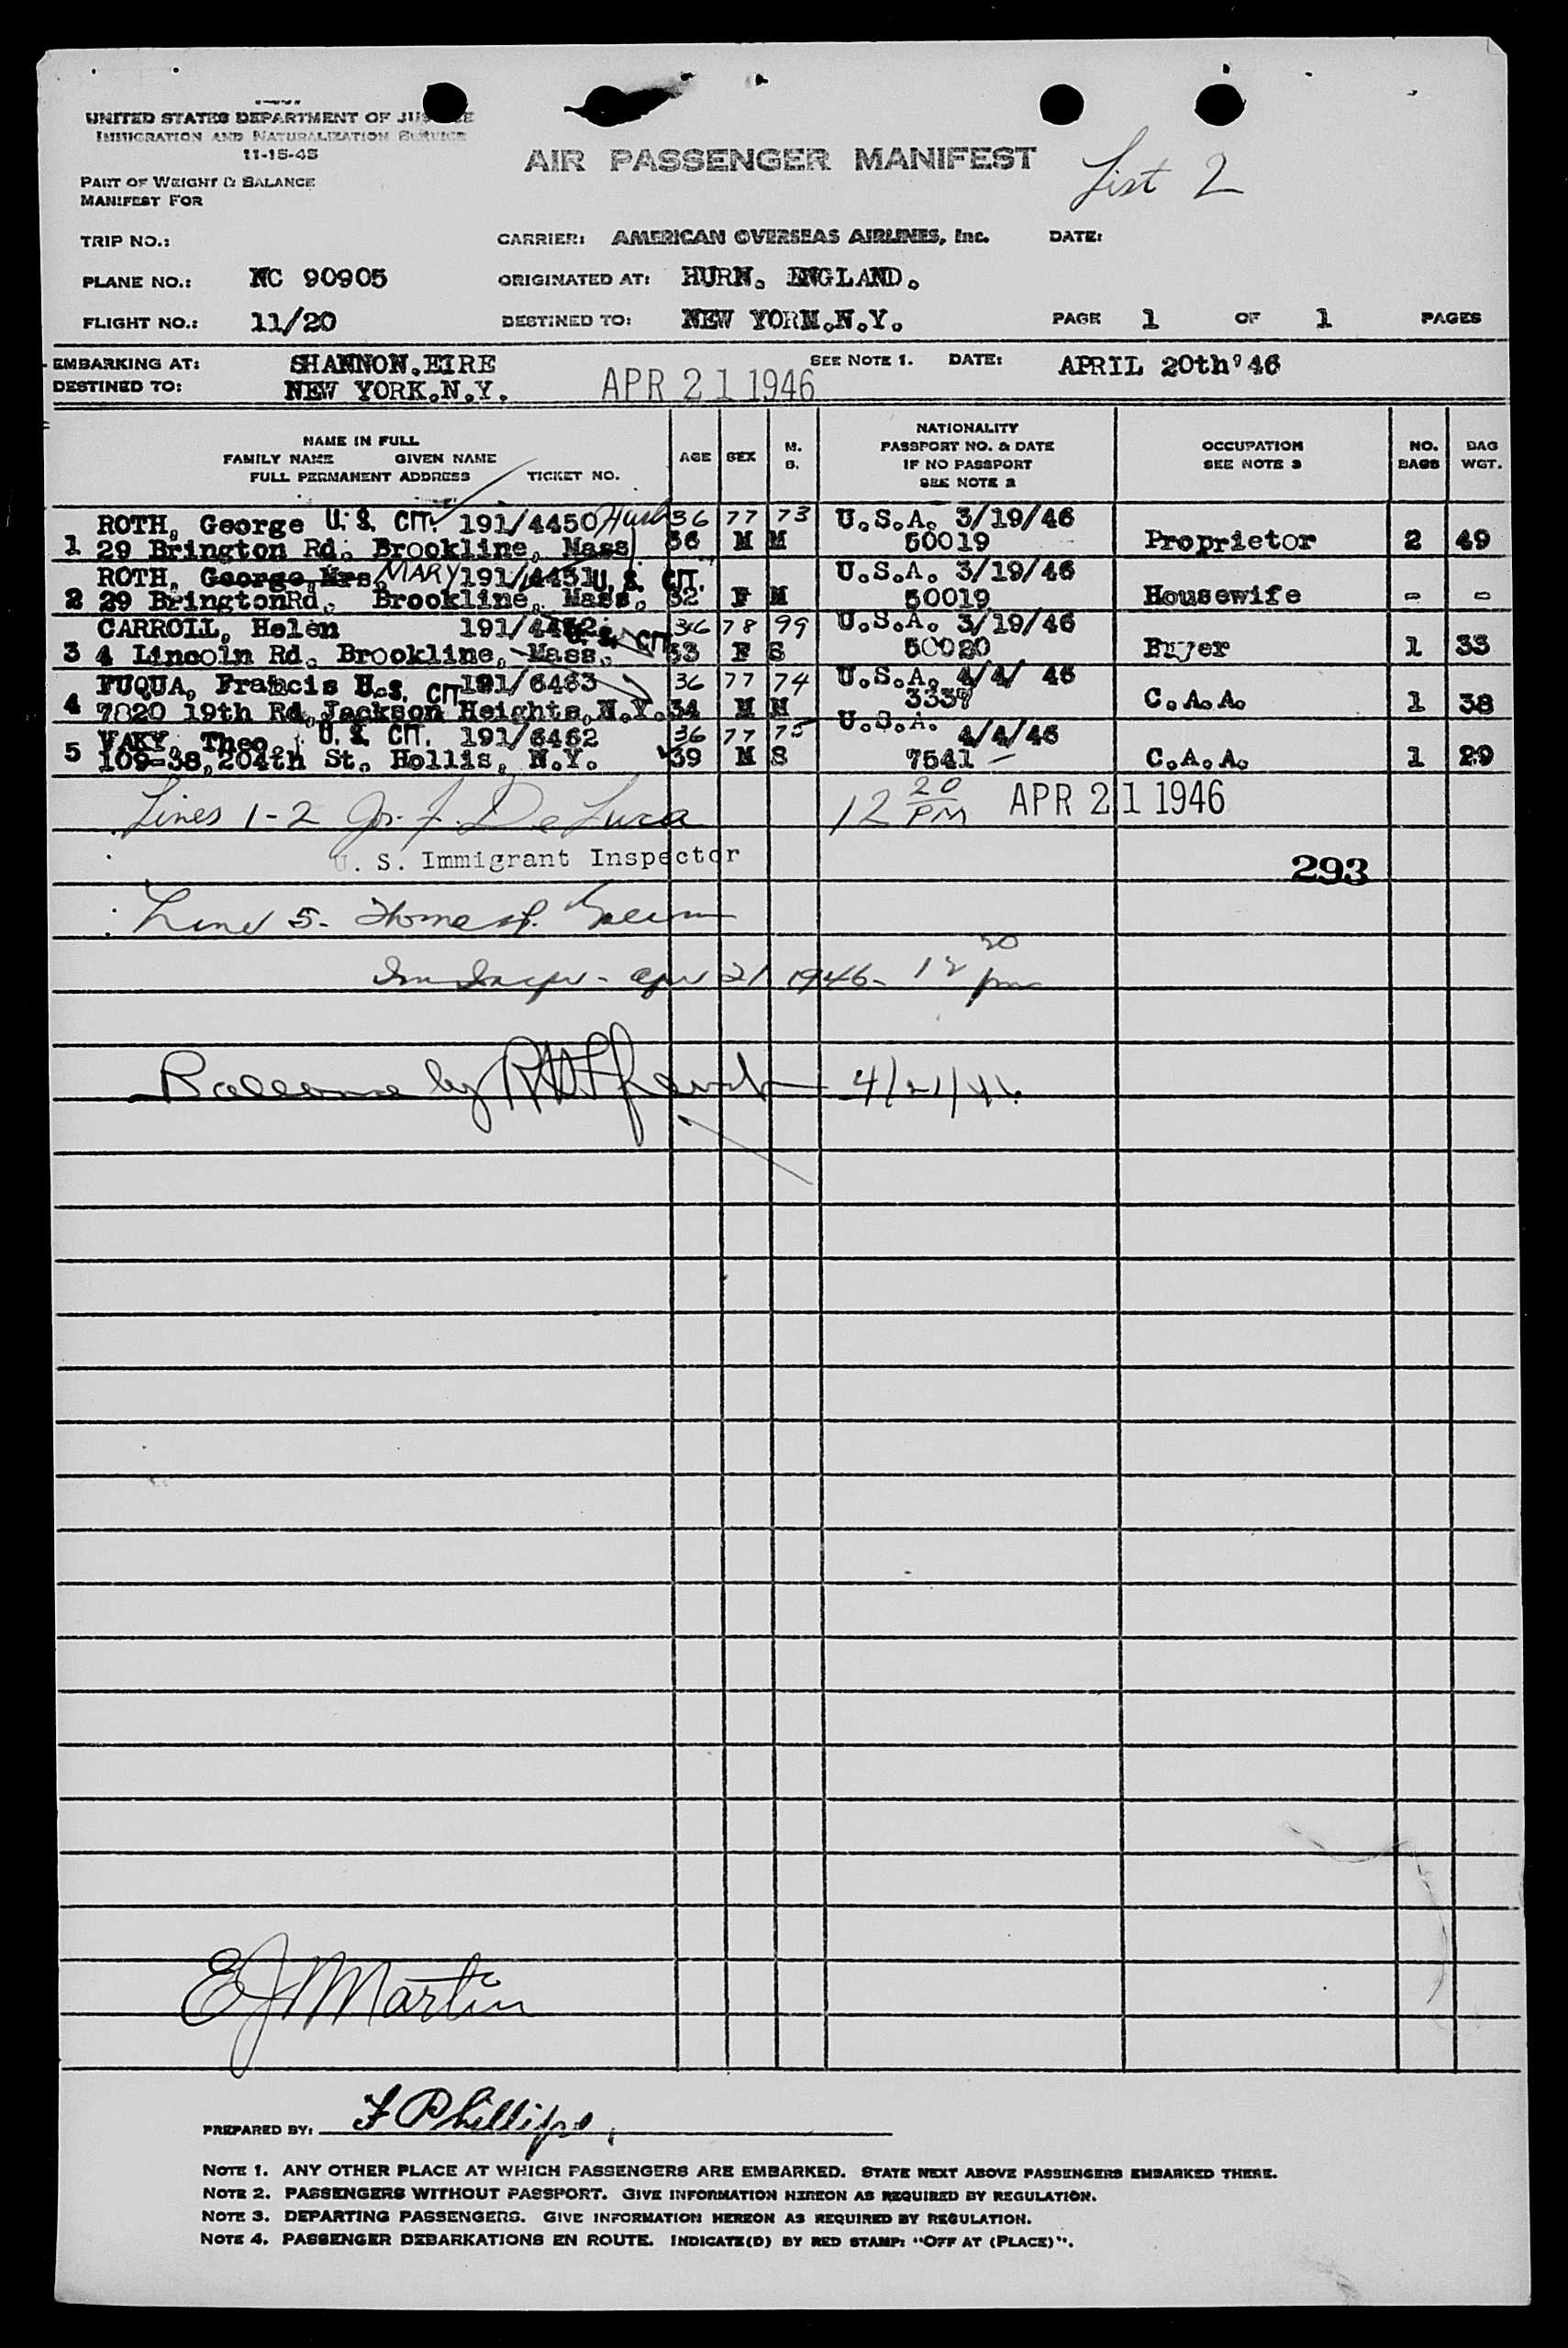 UNITED STATES DEPARTMENT OF JUSTICE
IMMIGRATION AND NATURALIZATION SERVICE
11-15-45
AIR PASSENGER MANIFEST
List 2
PART OF WEIGHT & BALANCE
MANIFEST FOR
TRIP NO.: CARRIER: AMERICAN OVERSEAS AIRLINES, Inc. DATE:
PLANE NO.: NC 90905 ORIGINATED AT: HURN. ENGLAND.
FLIGHT NO.: 11/20 DESTINED TO: NEW YORK.N.Y. PAGE 1 OF 1 PAGES
EMBARKING AT: SHANNON.EIRE SEE NOTE 1. DATE: APRIL 20th'46
DESTINED TO: NEW YORK.N.Y. APR 21 1946
NAME IN FULL
FAMILY NAME GIVEN NAME
FULL PERMANENT ADDRESS TICKET NO.
AGE SEX M. S.
NATIONALITY
PASSPORT NO. & DATE
IF NO PASSPORT
SEE NOTE 2
OCCUPATION
SEE NOTE 3
NO. BAGS
BAG WGT.
ROTH, George U. S. CIT. 191/4450 Husb 36 77 73 U.S.A. 3/19/46
1 29 Brington Rd. Brookline, Mass 36 M M 50019 Proprietor 2 49
ROTH, George, Mrs. MARY 191/4451 U. S. CIT. U.S.A. 3/19/46
2 29 BringtonRd. Brookline, Mass. 32 F M 50019 Housewife - -
CARROLL, Helen 191/4452 U. S. CIT. 36 78 99 U.S.A. 3/19/46
3 4 Lincoln Rd. Brookline, Mass. 33 F S 50020 Buyer 1 33
FUQUA, Francis U. S. CIT. 191/6463 36 77 74 U.S.A. 4/4/ 46
4 7820 19th Rd. Jackson Heights, N.Y. 34 M M 3337 C.A.A. 1 38
VAKY, Theo. U. S. CIT. 191/6462 36 77 75 U.S.A. 4/4/46
5 109-38, 204th St. Hollis, N.Y. 39 M S 7541 — C.A.A. 1 29
Lines 1-2 Jos. F. De Luca 12 20 PM APR 21 1946
U. S. Immigrant Inspector
293
Line 5-
Apr 21 1946- 12 20 pm
Balance by 4/21/46
E J Martin
PREPARED BY: F Phillips,
NOTE 1. ANY OTHER PLACE AT WHICH PASSENGERS ARE EMBARKED. STATE NEXT ABOVE PASSENGERS EMBARKED THERE.
NOTE 2. PASSENGERS WITHOUT PASSPORT. GIVE INFORMATION HEREON AS REQUIRED BY REGULATION.
NOTE 3. DEPARTING PASSENGERS. GIVE INFORMATION HEREON AS REQUIRED BY REGULATION.
NOTE 4. PASSENGER DEBARKATIONS EN ROUTE. INDICATE(D) BY RED STAMP: "OFF AT (PLACE)".